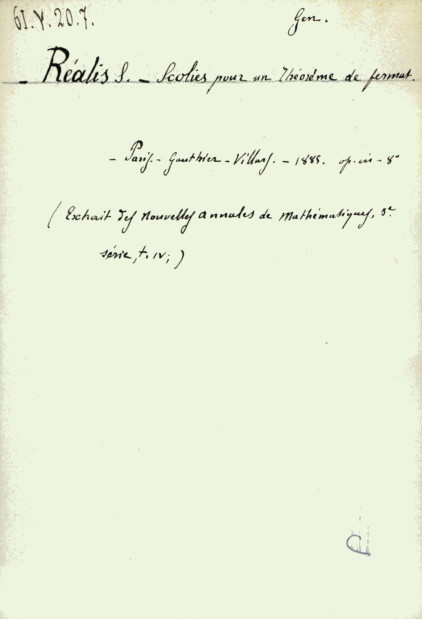 61.V.20.7.
Gen.
- Réalis S. - Scolies pour un Théorème de fermat.
- Paris. - Gauthier - Villars. - 1885. op. in - 8°
( Extrait des Nouvelles annales de Mathématiques, 3e
série, t. IV; )